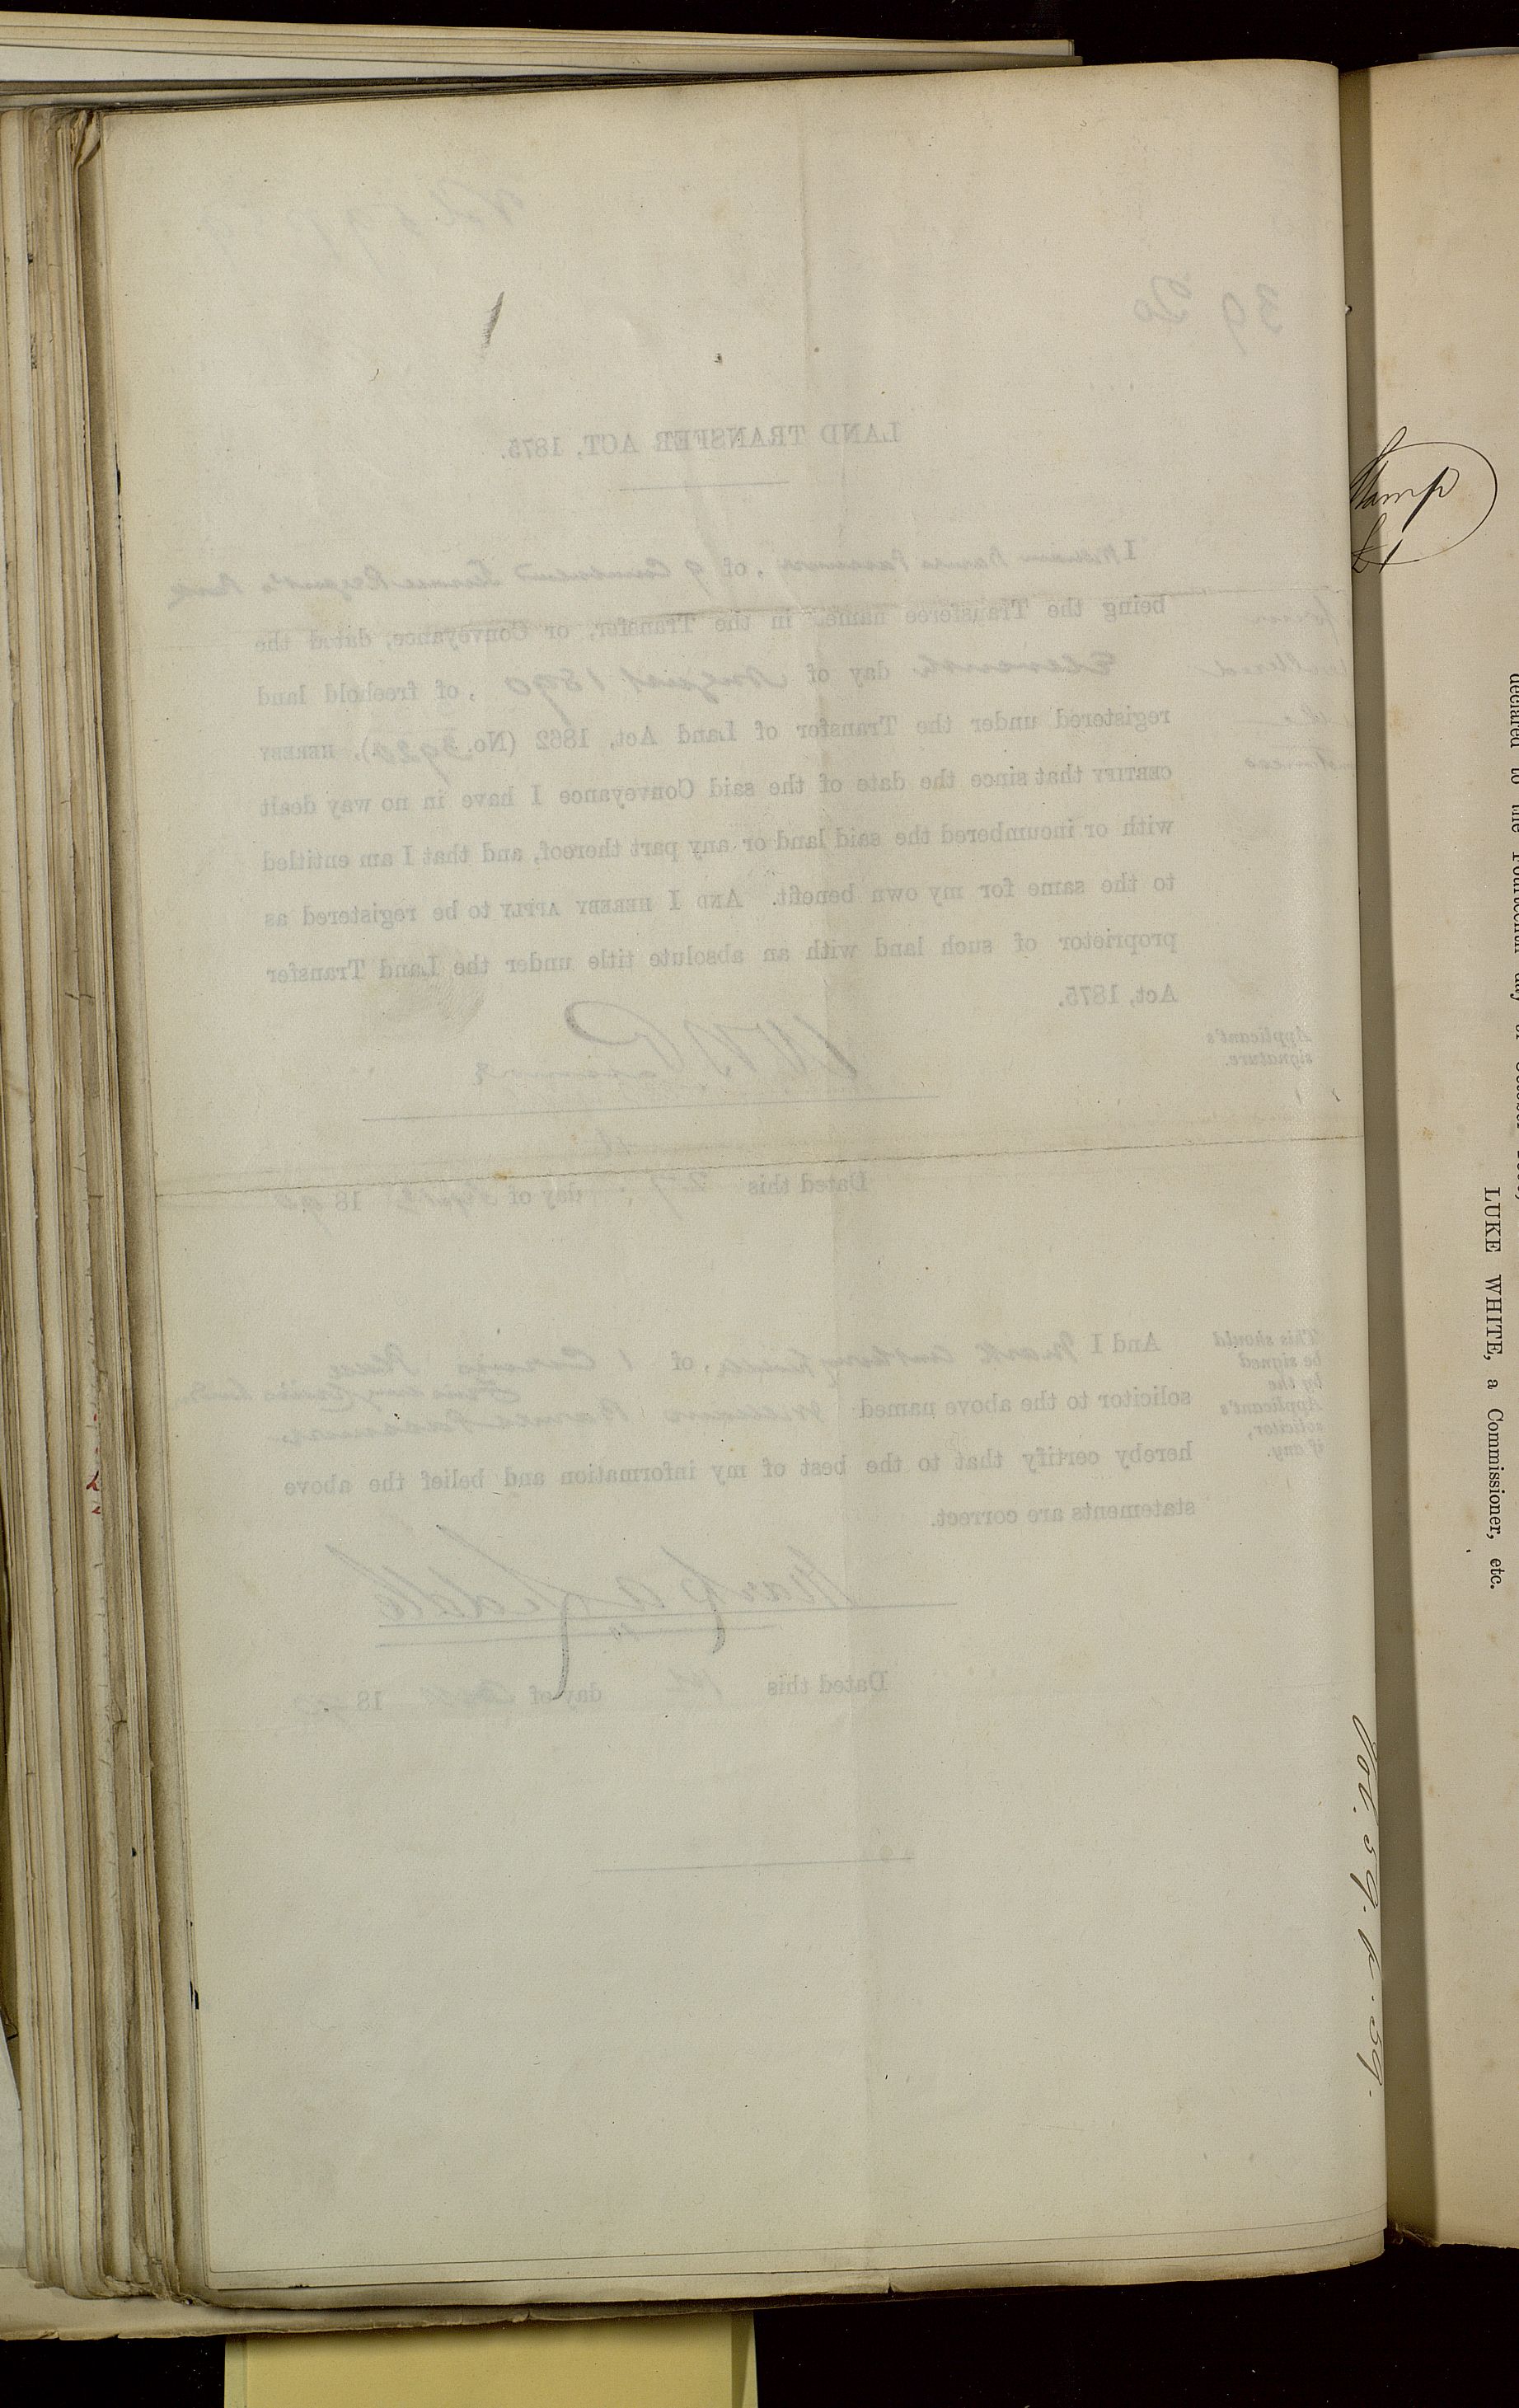 39 20
LAND TRANSFER ACT, 1875.
I William Barnes Passmore, of 9 Cambridge Terrace Regent's Park
being the Transferee named in the Transfer, or Conveyance, dated the
Eleventh day of August 1890, of freehold land
registered under the Transfer of Land Act, 1862 (No. 3920), HEREBY
CERTIFY that since the date of the said Conveyance I have in no way dealt
with or incumbered the said land or any part thereof, and that I am entitled
to the same for my own benefit. AND I HEREBY APPLY to be registered as
proprietor of such land with an absolute title under the Land Transfer
Act, 1875.
Applicant's
signature.
Dated this 27 day of Sept 1890
This should
be signed
by the
Applicant's
solicitor,
if any.
And I Mark Anthony, of 1
solicitor to the above named William Barnes Passmore
hereby certify that to the best of my information and belief the above
statements are correct.
Dated this 1st day of 18
Stamp
£1
declared to the Fourteenth day of
LUKE WHITE, a Commissioner, etc.
Vol. 59. p. 59.